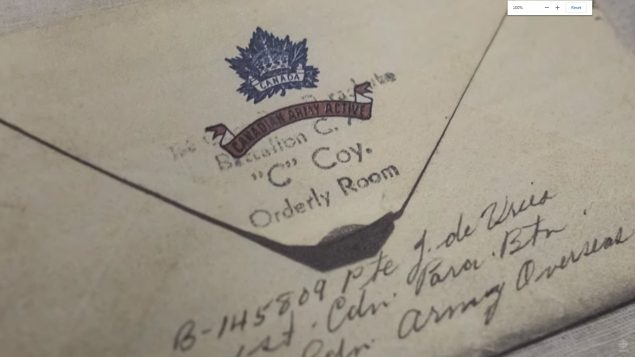 100%
Reset
CANADA
CANADIAN ARMY ACTIVE
Battalion C.
"C" Coy.
Orderly Room
B-145809 Pte J. de Vries
1st. Cdn. Para. Btn.
Cdn. Army Overseas